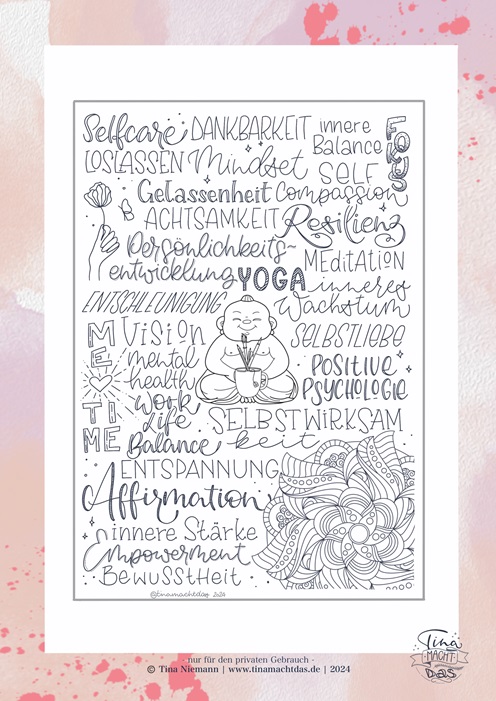 Selfcare DANKBARKEIT innere Balance FOKUS
LOSLASSEN Mindset SELF
Gelassenheit Compassion
ACHTSAMKEIT Resilienz
Persönlichkeits~
entwicklung YOGA MEDitATION
inneres
ENTSCHLEUNIGUNG Wachstum
ME TIME
VISION SELBSTLIEBE
mental
health
POSITIVE
PSYCHOLOGIE
Work
Life
Balance
SELBSTWIRKSAM
keit
ENTSPANNUNG
Affirmation
innere Stärke
Empowerment
BEWUSStHeit
@tinamachtdas 2024
- nur für den privaten Gebrauch -
© Tina Niemann | www.tinamachtdas.de | 2024
Tina
MACHT
DAS